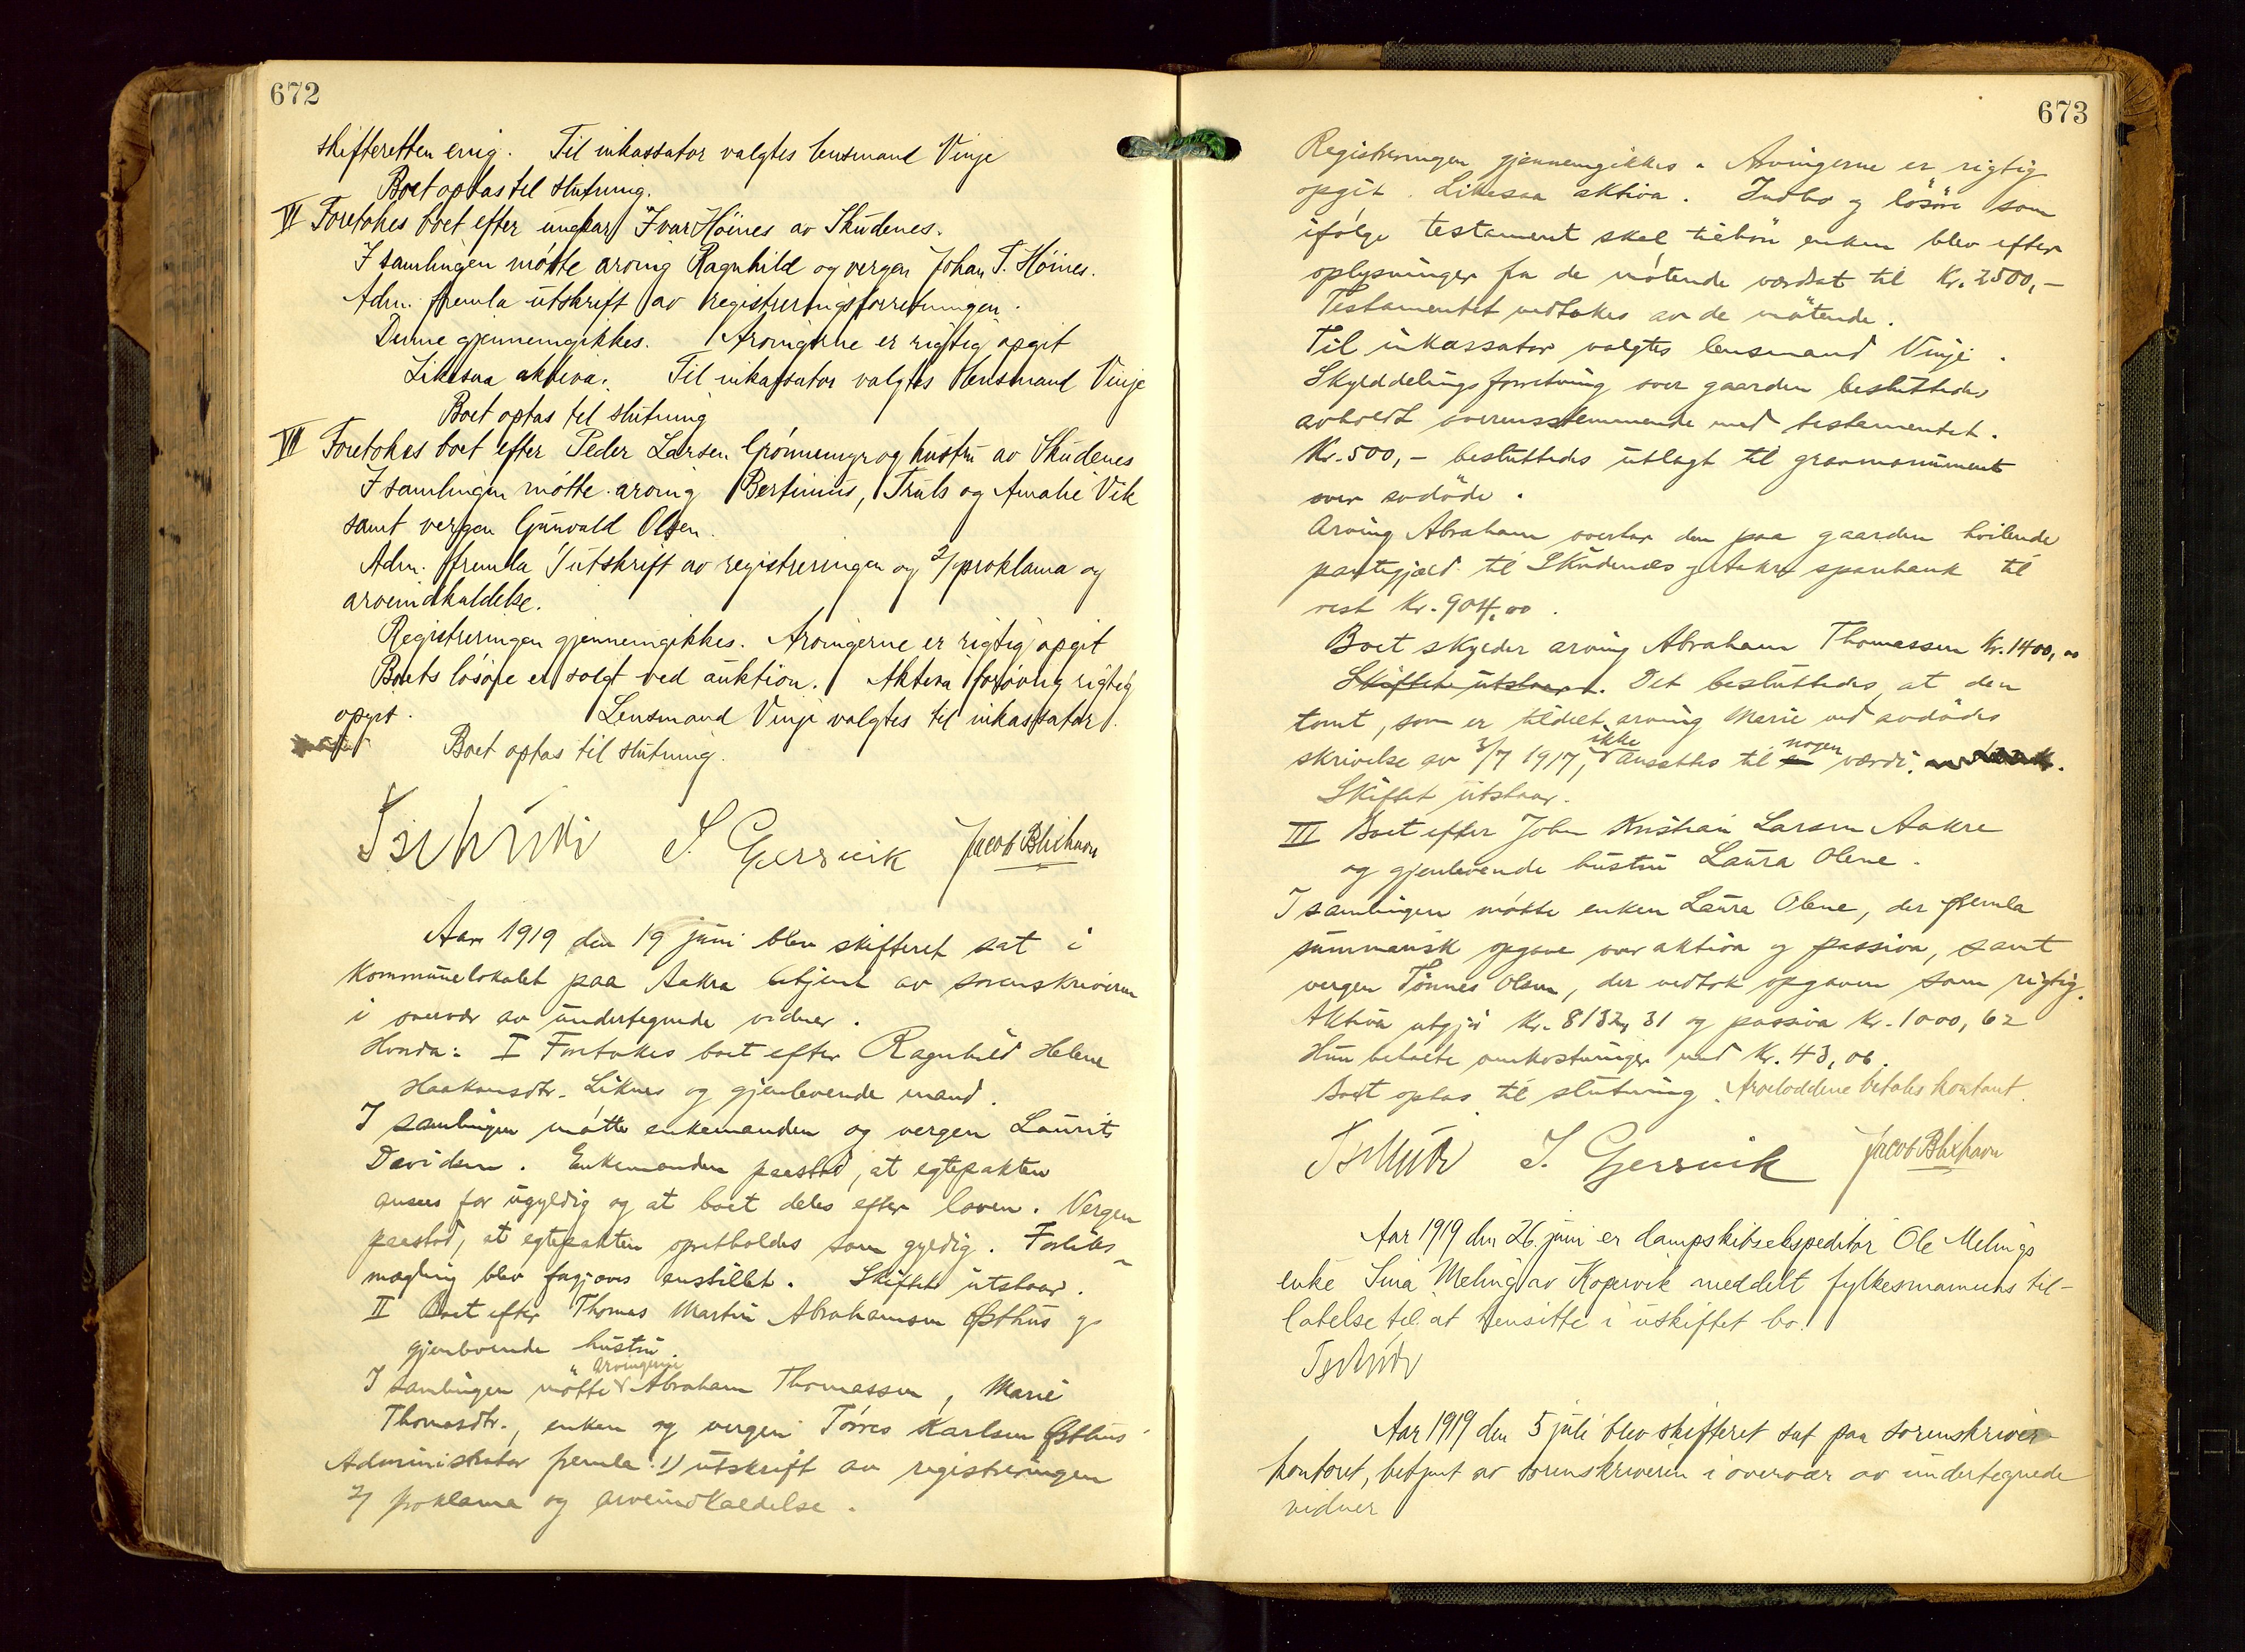 672
skifteretten enig. Til inkassator valgtes lensmand Vinje
Boet optas til slutning.
VI Foretokes boet efter ungkar Ivar Höines av Skudenes.
I samlingen mötte arving Ragnhild og vergen Johan T. Höines.
Adm. fremla utskrift av registreringsforretningen.
Denne gjennemgikkes. Arvingerne er rigtig opgit
Likesaa aktiva. Til inkassator valgtes lensmand Vinje
Boet optas til slutning
VII Foretokes boet efter Peder Larsen Grönnemyr og hustru av Skudenes
I samlingen mötte arving Bertinius, Truls og Amalie Vik
samt vergen Gunvald Olsen.
Adm. fremla 1/ utskrift av registreringen og 2/ proklama og
arveindkaldelse.
Registreringen gjennemgikkes. Arvingerne er rigtig opgit
Boets lösöre er solgt ved auktion. Aktiva forövrig rigtig
opgit. Lensmand Vinje valgtes til inkassator.
Boet optas til slutning.
Tschudi S. Gjersvik Jacob Blixhavn
Aar 1919 den 19 juni blev skifteret sat i
kommunelokalet paa Aakra betjent av sorenskriveren
i overvær av undertegnede vidner.
Hvorda: I Foretokes boet efter Ragnhild Helene
Haakonsdtr. Liknes og gjenlevende mand.
I samlingen mötte enkemanden og vergen Laurits
Davidsen. Enkemanden paastod, at egtepakten
ansees for ugyldig og at boet deles efter loven. Vergen
paastod, at egtepakten opretholdes som gyldig. Forliks-
mægling blev forgjæves anstillet. Skiftet utstaar.
II Boet efter Thomas Martin Abrahamsen Østhus og
gjenlevende hustru.
arvingerne
I samlingen mötte Abraham Thomassen, Marie
Thomasdtr., enken og vergen Törres Karlsen Østhus
Administrator fremla: 1) utskrift av registreringen
2/ proklama og arveindkaldelse.
673
Registreringen gjennemgikkes. Arvingerne er rigtig
opgit. Likesaa aktiva. Indbo og lösöre som
ifölge testament skal tilhöre enken blev efter
oplysninger fra de mötende værdsat til Kr. 2500,-
Testamentet vedtokes av de mötende.
Til inkassator valgtes lensmand Vinje.
Skylddelingsforretning over gaarden besluttedes
avholdt overensstemmende med testamentet.
Kr. 500,- besluttedes utlagt til gravmonument
over avdöde.
Arving Abraham overtar den paa gaarden hvilende
pantegjæld til Skudenes og Aakre sparebank til
rest Kr. 904,00.
Boet skylder arving Abraham Thomassen Kr. 1400,00
Skiftet utstaar. Det besluttedes, at den
tomt, som er tildelt arving Marie ved avdödes
skrivelse av 3/7 1917, ikke ansættes til nogen værdi.
Skiftet utstaar.
III Boet efter John Kristian Larsen Aakre
og gjenlevende hustru Laura Olene.
I samlingen mötte enken Laura Olene, der fremla
summarisk opgave over aktiva og passiva, samt
vergen Tönnes Olsen, der vedtok opgaven som rigtig.
Aktiva utgjör Kr. 8132,31 og passiva Kr. 1000,62
Hun betalte omkostninger med Kr. 43,06.
Boet optas til slutning. Arveloddene betales kontant.
Tschudi S. Gjersvik Jacob Blixhavn
Aar 1919 den 26. juni er dampskibsekspeditör Ole Melings
enke Sina Meling av Kopervik meddelt fylkesmannens til-
latelse til at hensitte i uskiftet bo.
Tschudi
Aar 1919 den 5 juli blev skifteret sat paa sorenskriver
kontoret, betjent av sorenskriveren i overvær av undertegnede
vidner